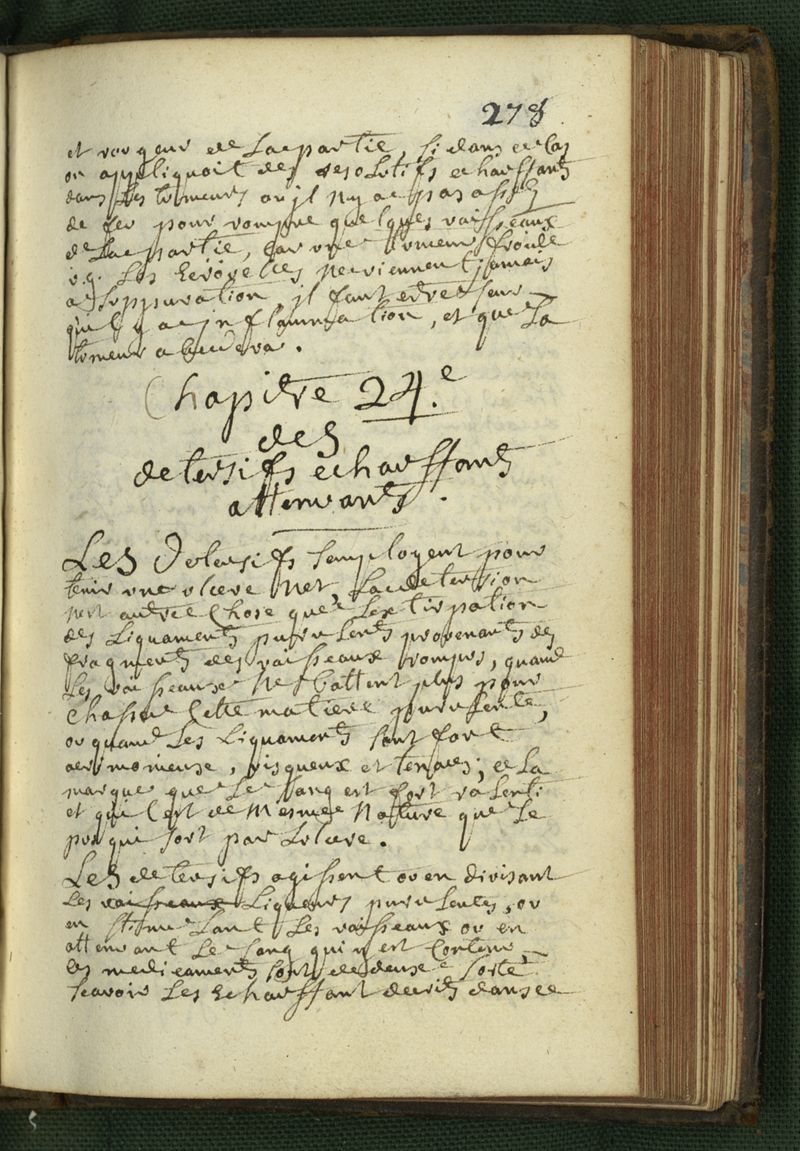 278
et rougeur de La partie, si dans ce Cas
on appliquoit des resolutifs echauffants
dans Les tumeurs ou jl n'y a pas assez
de feu pour rompre quelques vaisseaux
de La partie, Car une tumeur froide
v.g. Les Ecrovelles ne viennent jamais
a Suppuration, jl faut etre seur
qu'il y a jnflammation, et que La
tumeur abcedera.
Chapitre 24.e
des
detersifs echauffants
attenuants.
Les Detersifs s'employent pour
tenir une ulcere Net, La detersion
n'est autre Chose que L'extirpation
des Liquaments purulents provenants des
fragments des vaisseaux rompus, quand
Les vaisseaux Ne battent plus pour
Chasser Cette matiere purulente,
ou quand Les Liquaments sont fort
acrimonieuse, visqueux et tenaces; ce La
marque que Le sang est fort ralenti
et qui C'est de Mesme Nature que Le
pus qui sort par L'ulcere.
Les detersifs agissent ou en divisant
Les vaisseaux Liqueurs purulentes, ou
en stimulant Les vaisseaux ou en
attenuant Le sang qui y est Contenu
Ces medicaments sont de deux Sorte
scavoir Les Echauffant decrits dans ce